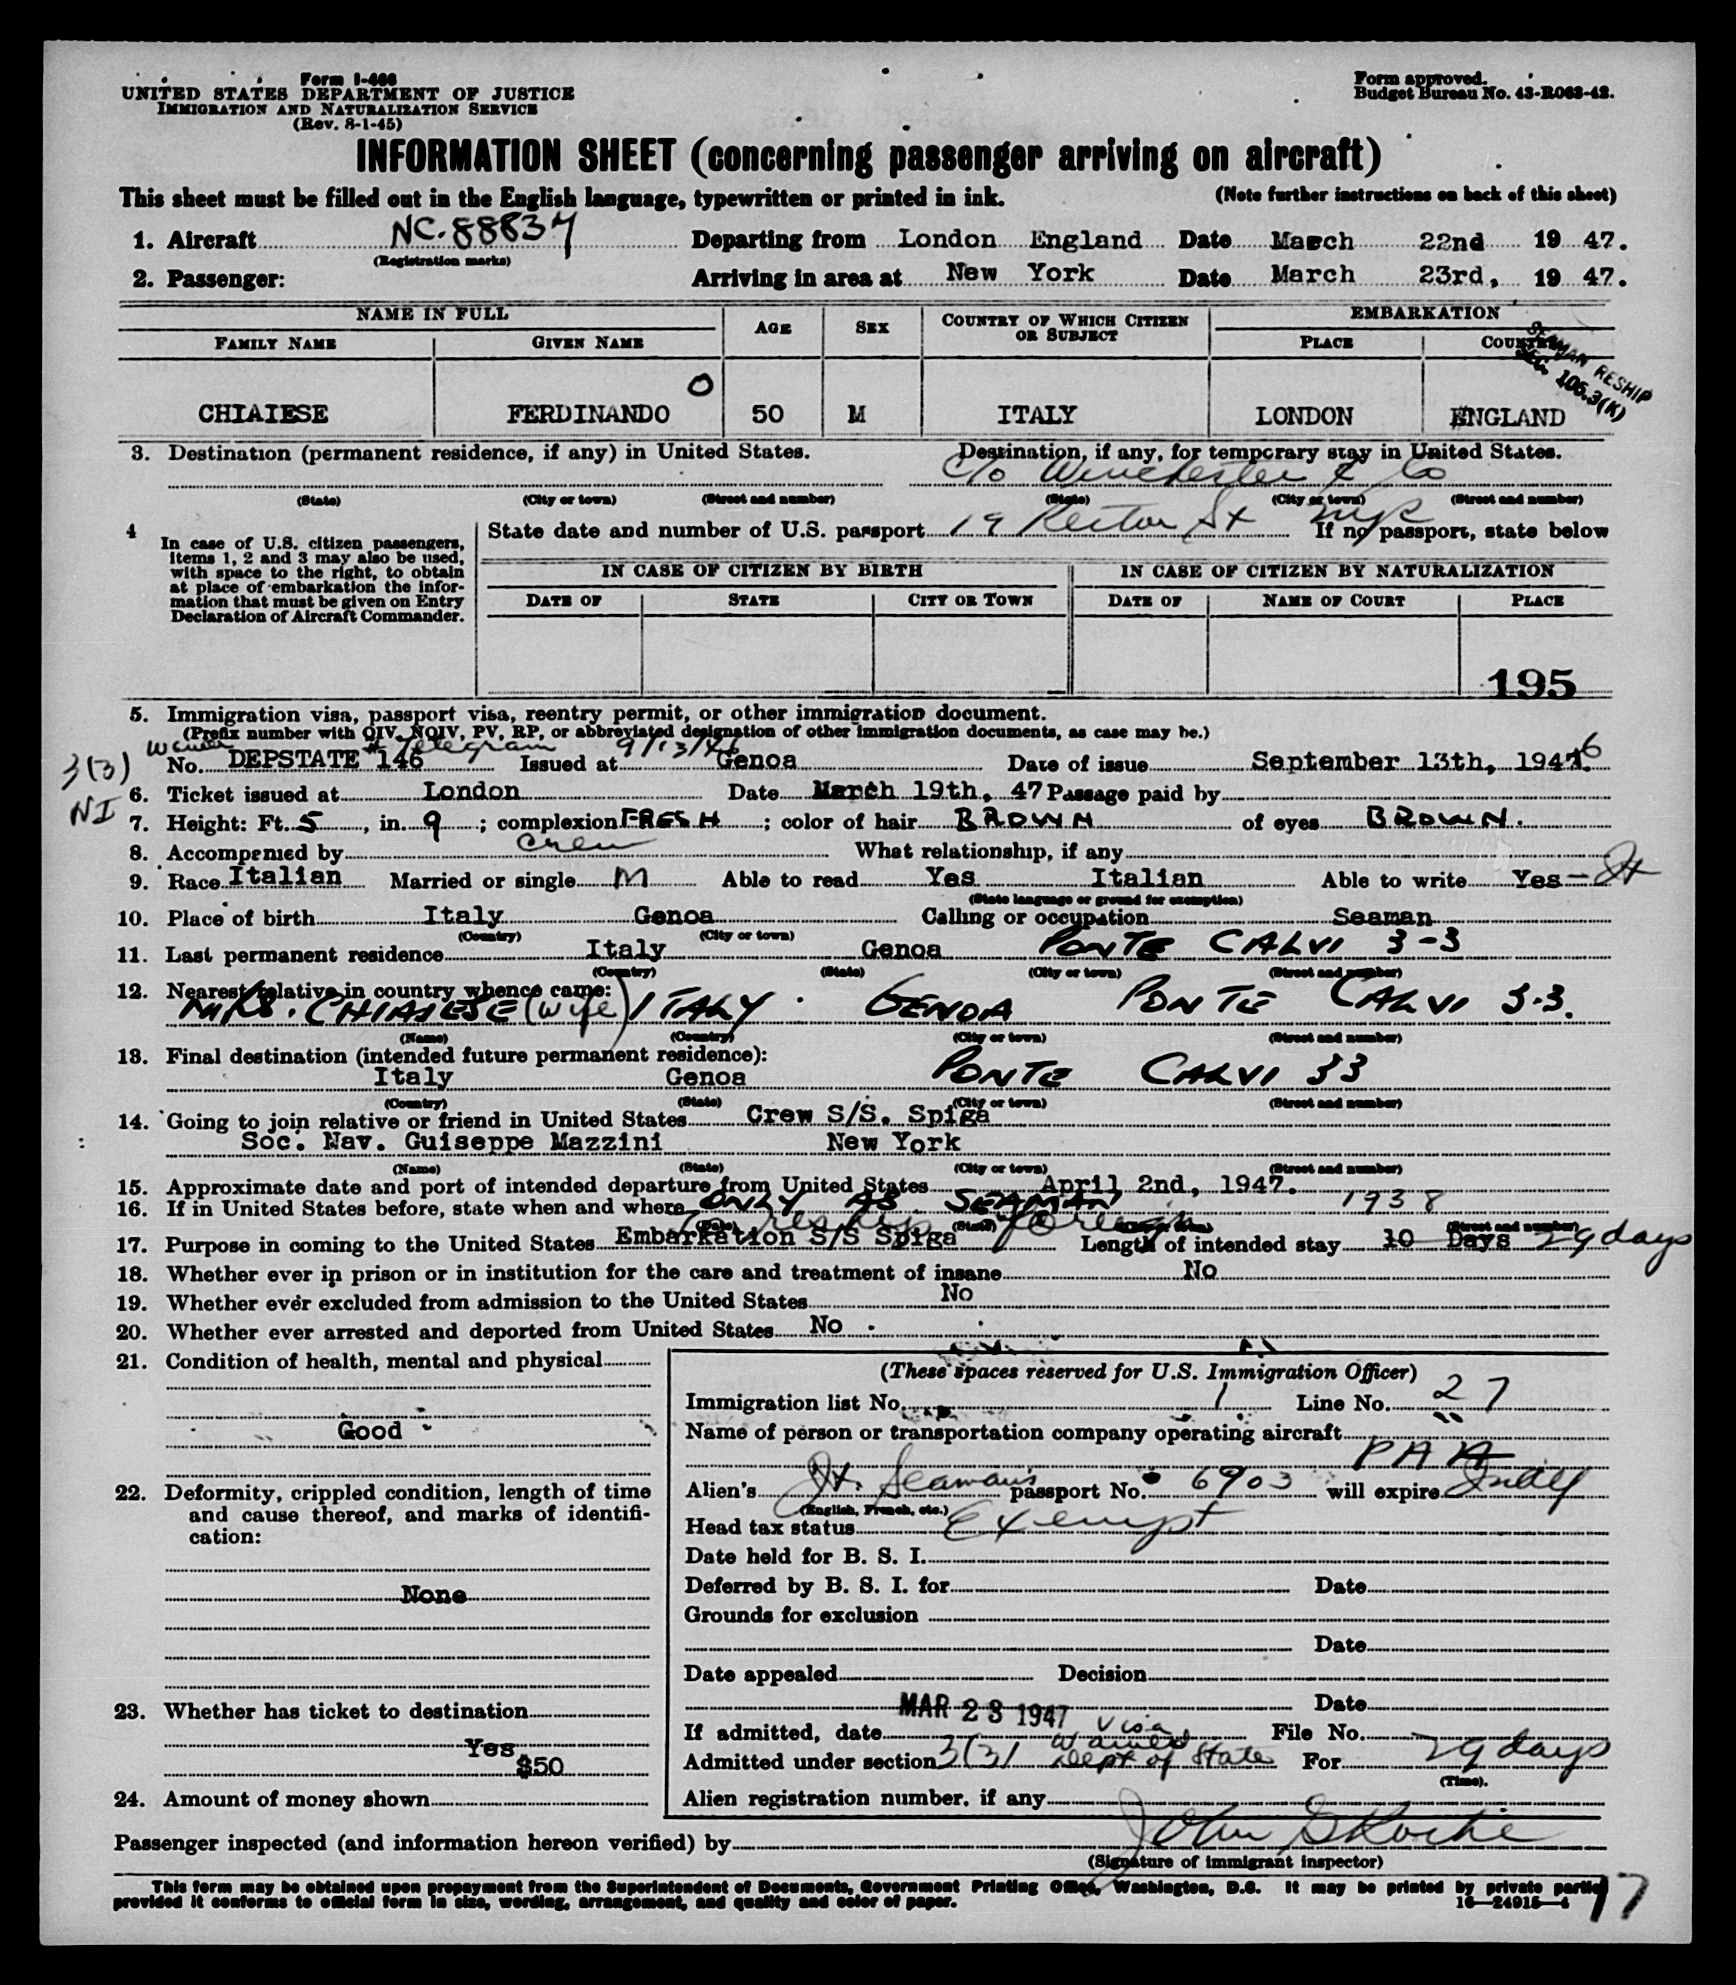 Form I-466
UNITED STATES DEPARTMENT OF JUSTICE
IMMIGRATION AND NATURALIZATION SERVICE
(Rev. 8-1-45)
Form approved.
Budget Bureau No. 43-R063-42.
INFORMATION SHEET (concerning passenger arriving on aircraft)
This sheet must be filled out in the English language, typewritten or printed in ink. (Note further instructions on back of this sheet)
1. Aircraft NC. 88837 Departing from London England Date March 22nd 19 47.
(Registration marks)
2. Passenger: Arriving in area at New York Date March 23rd, 19 47.
NAME IN FULL AGE SEX COUNTRY OF WHICH CITIZEN OR SUBJECT EMBARKATION
FAMILY NAME GIVEN NAME PLACE COUNTRY
SEAMAN RESHIP
SEC. 105.3(K)
O
CHIAIESE FERDINANDO 50 M ITALY LONDON ENGLAND
3. Destination (permanent residence, if any) in United States. Destination, if any, for temporary stay in United States.
C/o Winchester & Co
(State) (City or town) (Street and number) (State) (City or town) (Street and number)
4 State date and number of U.S. passport 19 Rector St NYC If no passport, state below
In case of U.S. citizen passengers,
items 1, 2 and 3 may also be used,
with space to the right, to obtain
at place of embarkation the infor-
mation that must be given on Entry
Declaration of Aircraft Commander.
IN CASE OF CITIZEN BY BIRTH IN CASE OF CITIZEN BY NATURALIZATION
DATE OF STATE CITY OR TOWN DATE OF NAME OF COURT PLACE
195
5. Immigration visa, passport visa, reentry permit, or other immigration document.
(Prefix number with QIV, NQIV, PV, RP, or abbreviated designation of other immigration documents, as case may be.)
Waiver # Telegram 9/13/46
3(3) No. DEPSTATE 146 Issued at Genoa Date of issue September 13th, 1947. 6
NI
6. Ticket issued at London Date March 19th, 47 Passage paid by
7. Height: Ft. 5, in. 9; complexion FRESH; color of hair BROWN of eyes BROWN.
8. Accompanied by Crew What relationship, if any
9. Race Italian Married or single M Able to read Yes Italian Able to write Yes - It
(State language or ground for exemption)
10. Place of birth Italy Genoa Calling or occupation Seaman
(Country) (City or town)
11. Last permanent residence Italy Genoa PONTE CALVI 3-3
(Country) (State) (City or town) (Street and number)
12. Nearest relative in country whence came:
MRS. CHIAIESE (wife) ITALY. GENOA PONTE CALVI 3-3.
(Name) (Country) (City or town) (Street and number)
13. Final destination (intended future permanent residence):
Italy Genoa PONTE CALVI 33
(Country) (State) (City or town) (Street and number)
14. Going to join relative or friend in United States Crew S/S. Spiga
Soc. Nav. Guiseppe Mazzini New York
(Name) (State) (City or town) (Street and number)
15. Approximate date and port of intended departure from United States April 2nd, 1947.
16. If in United States before, state when and where ONLY AS SEAMAN 1938
(Date) (State) (City or town) (Street and number)
To reship foreign
17. Purpose in coming to the United States Embarkation S/S Spiga Length of intended stay 10 Days 29 days
18. Whether ever in prison or in institution for the care and treatment of insane No
19. Whether ever excluded from admission to the United States No
20. Whether ever arrested and deported from United States No.
21. Condition of health, mental and physical
Good
22. Deformity, crippled condition, length of time
and cause thereof, and marks of identifi-
cation:
None
23. Whether has ticket to destination
Yes
$50
24. Amount of money shown
(These spaces reserved for U.S. Immigration Officer)
Immigration list No. 1 Line No. 27
Name of person or transportation company operating aircraft
PAA
Alien's It. Seaman's passport No. 6903 will expire Indef
(English, French, etc.)
Head tax status Exempt
Date held for B. S. I.
Deferred by B. S. I. for Date
Grounds for exclusion
Date
Date appealed Decision
Date
If admitted, date MAR 23 1947 File No.
visa waived
Admitted under section 3(3) Dept of State For 29 days
(Time).
Alien registration number, if any
Passenger inspected (and information hereon verified) by John D Roche
(Signature of immigrant inspector)
This form may be obtained upon prepayment from the Superintendent of Documents, Government Printing Office, Washington, D.C. It may be printed by private parties
provided it conforms to official form in size, wording, arrangement, and quality and color of paper. 16—24915-4
17